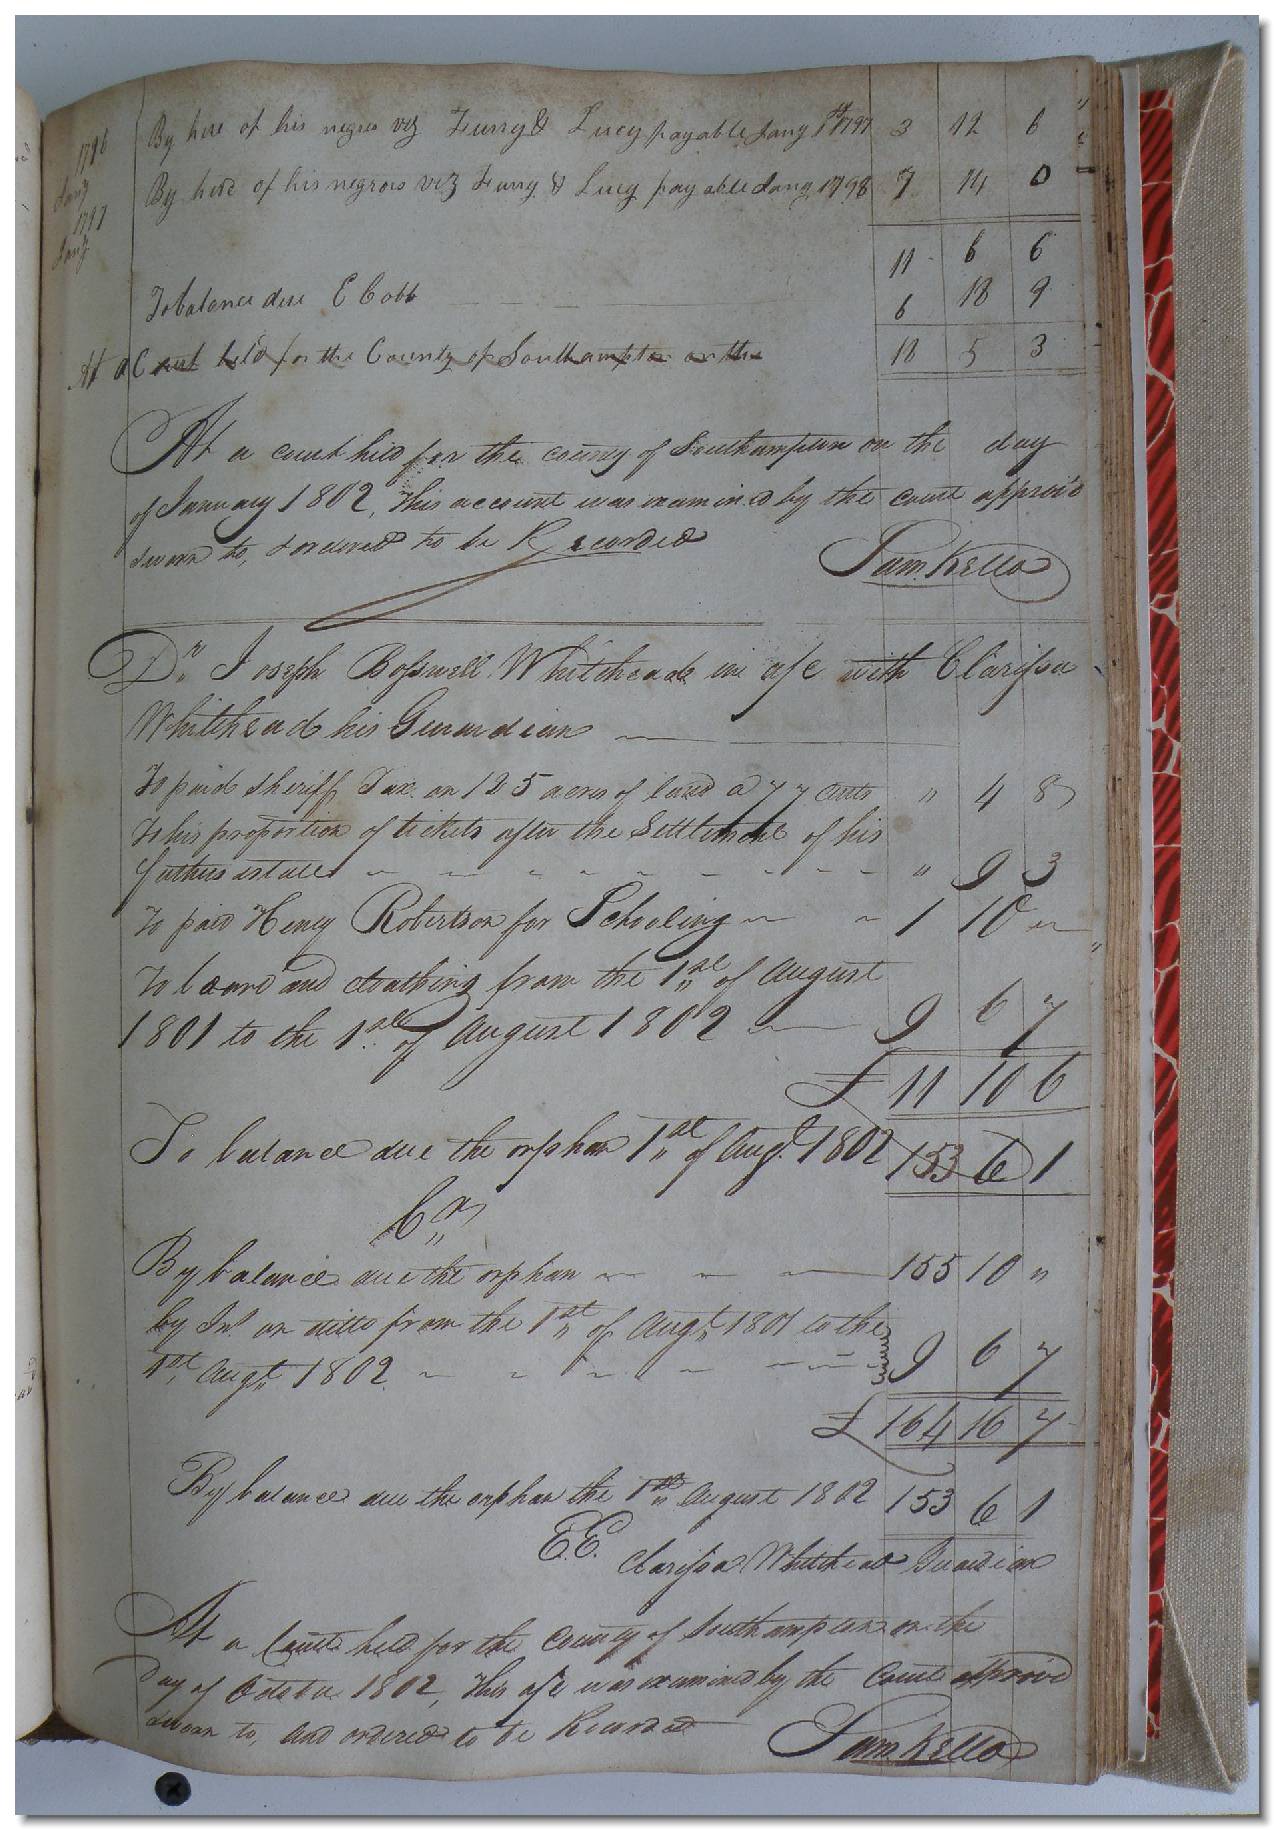 1796 By hire of his negros viz Furry & Lucy payable Jany 1st 1797 3 12 6
Jany
1797 By hire of his negros viz Furry & Lucy payable Jany 1798 7 14 0
Jany
11 6 6
To balance due E Cobb 6 18 9
At a Court held for the County of Southampton on the 18 5 3
At a court held for the county of Southampton on the day
of January 1802, This account was examined by the court approv'd
sworn to, & ordered to be Recorded
Sam. Kello
Dr. Joseph Bosswell Whitehead in a/c with Clarissa
Whitehead his Guardian
To paid Sheriff Tax on 125 acres of land a 77 cents " 4 8
To his proportion of tickets after the Settlement of his
fathers estate " 9 3
To paid Henry Robertson for Schooling 1 10 "
To board and cloathing from the 1st of August
1801 to the 1st of August 1802 9 6 7
£ 11 10 6
To balance due the orphan 1st of Augt. 1802 153 6 1
Cr
By balance due the orphan 155 10 "
by Int. on ditto from the 1st of Augt 1801 to the
1st Augt 1802 9 6 7
£ 164 16 7
By balance due the orphan the 1st August 1802 153 6 1
E.E. Clarissa Whitehead Guardian
At a Court held for the County of Southampton on the
Day of October 1802, This a/c was examined by the Court approv'd
sworn to, and ordered to be Recorded
Sam. Kello